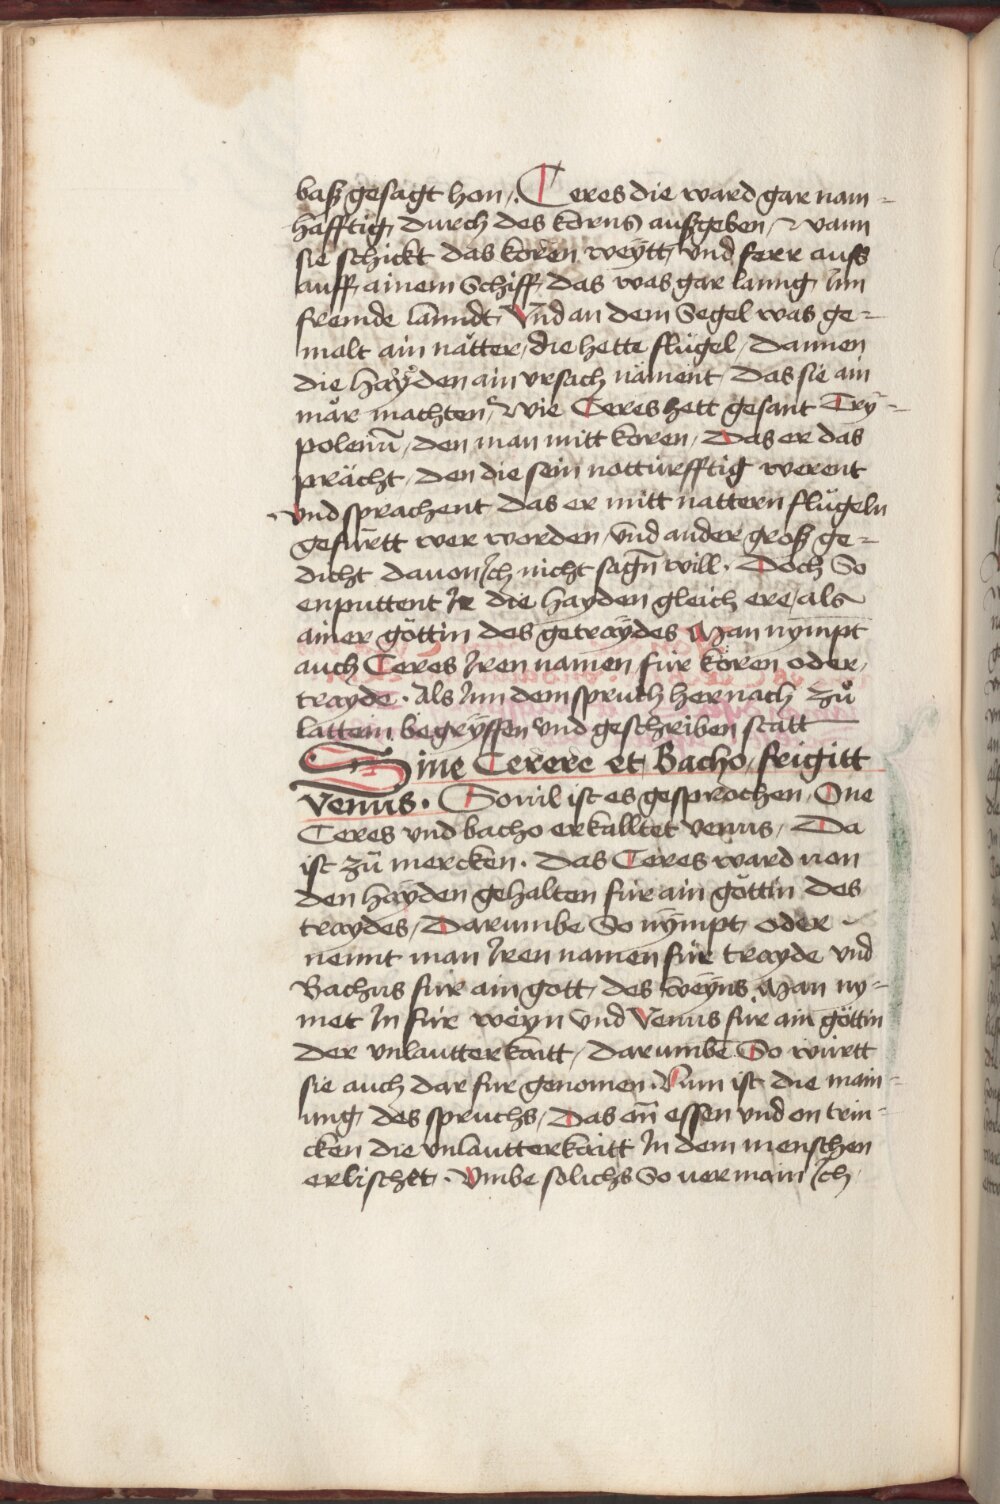 baß gesagt hon / Ceres die ward gar nam-
hafftig durch des korns außgeben / wann
sie schickt das koren weytt und ferr auss
auff ainem Schiff das was gar lanng Inn
fremde lanndt Vnd an dem Segel was ge-
malt ain nätter / die hette flügel / dannen
die hayden ain vrsach nament das sie ain
mär machten / wie Ceres hett gesant Try-
polemū / den man mitt koren / Das er das
prächt / den die sein notturfftig werent
vnd sprachent das er mitt nattern flügeln
gefürtt wer worden / vnd ander groß ge-
dicht dauon Ich nicht sagn̄ will . Doch So
enputtent Ir die hayden gleich ere / als
ainer göttin des getraydes Man nympt
auch Ceres Iren namen für koren oder
trayde . Als Inn dem spruch hernach zů
lattein begryffen vnd geschriben statt
Sine Cerere et Bacho / frigitt
Venus . Souil ist es gesprochen / One
Ceres vnd bacho erkalltet venus / Da
ist zū mercken . das Ceres ward von
den hayden gehalten für ain göttin des
traydes / Darumbe So nympt oder
nennt man Iren namen für trayde vnd
Bachus für ain gott des weyns Man ny-
met In für weyn vnd Venus für ain göttin
der vnlautterkaitt / darumbe So württ
sie auch dar für genomen . Nun ist die main-
ung des spruchs / Das on̄ essen vnd on trin-
cken die vnlautterkaitt In dem menschen
erlischett . Vmbe solichs So vermain Ich